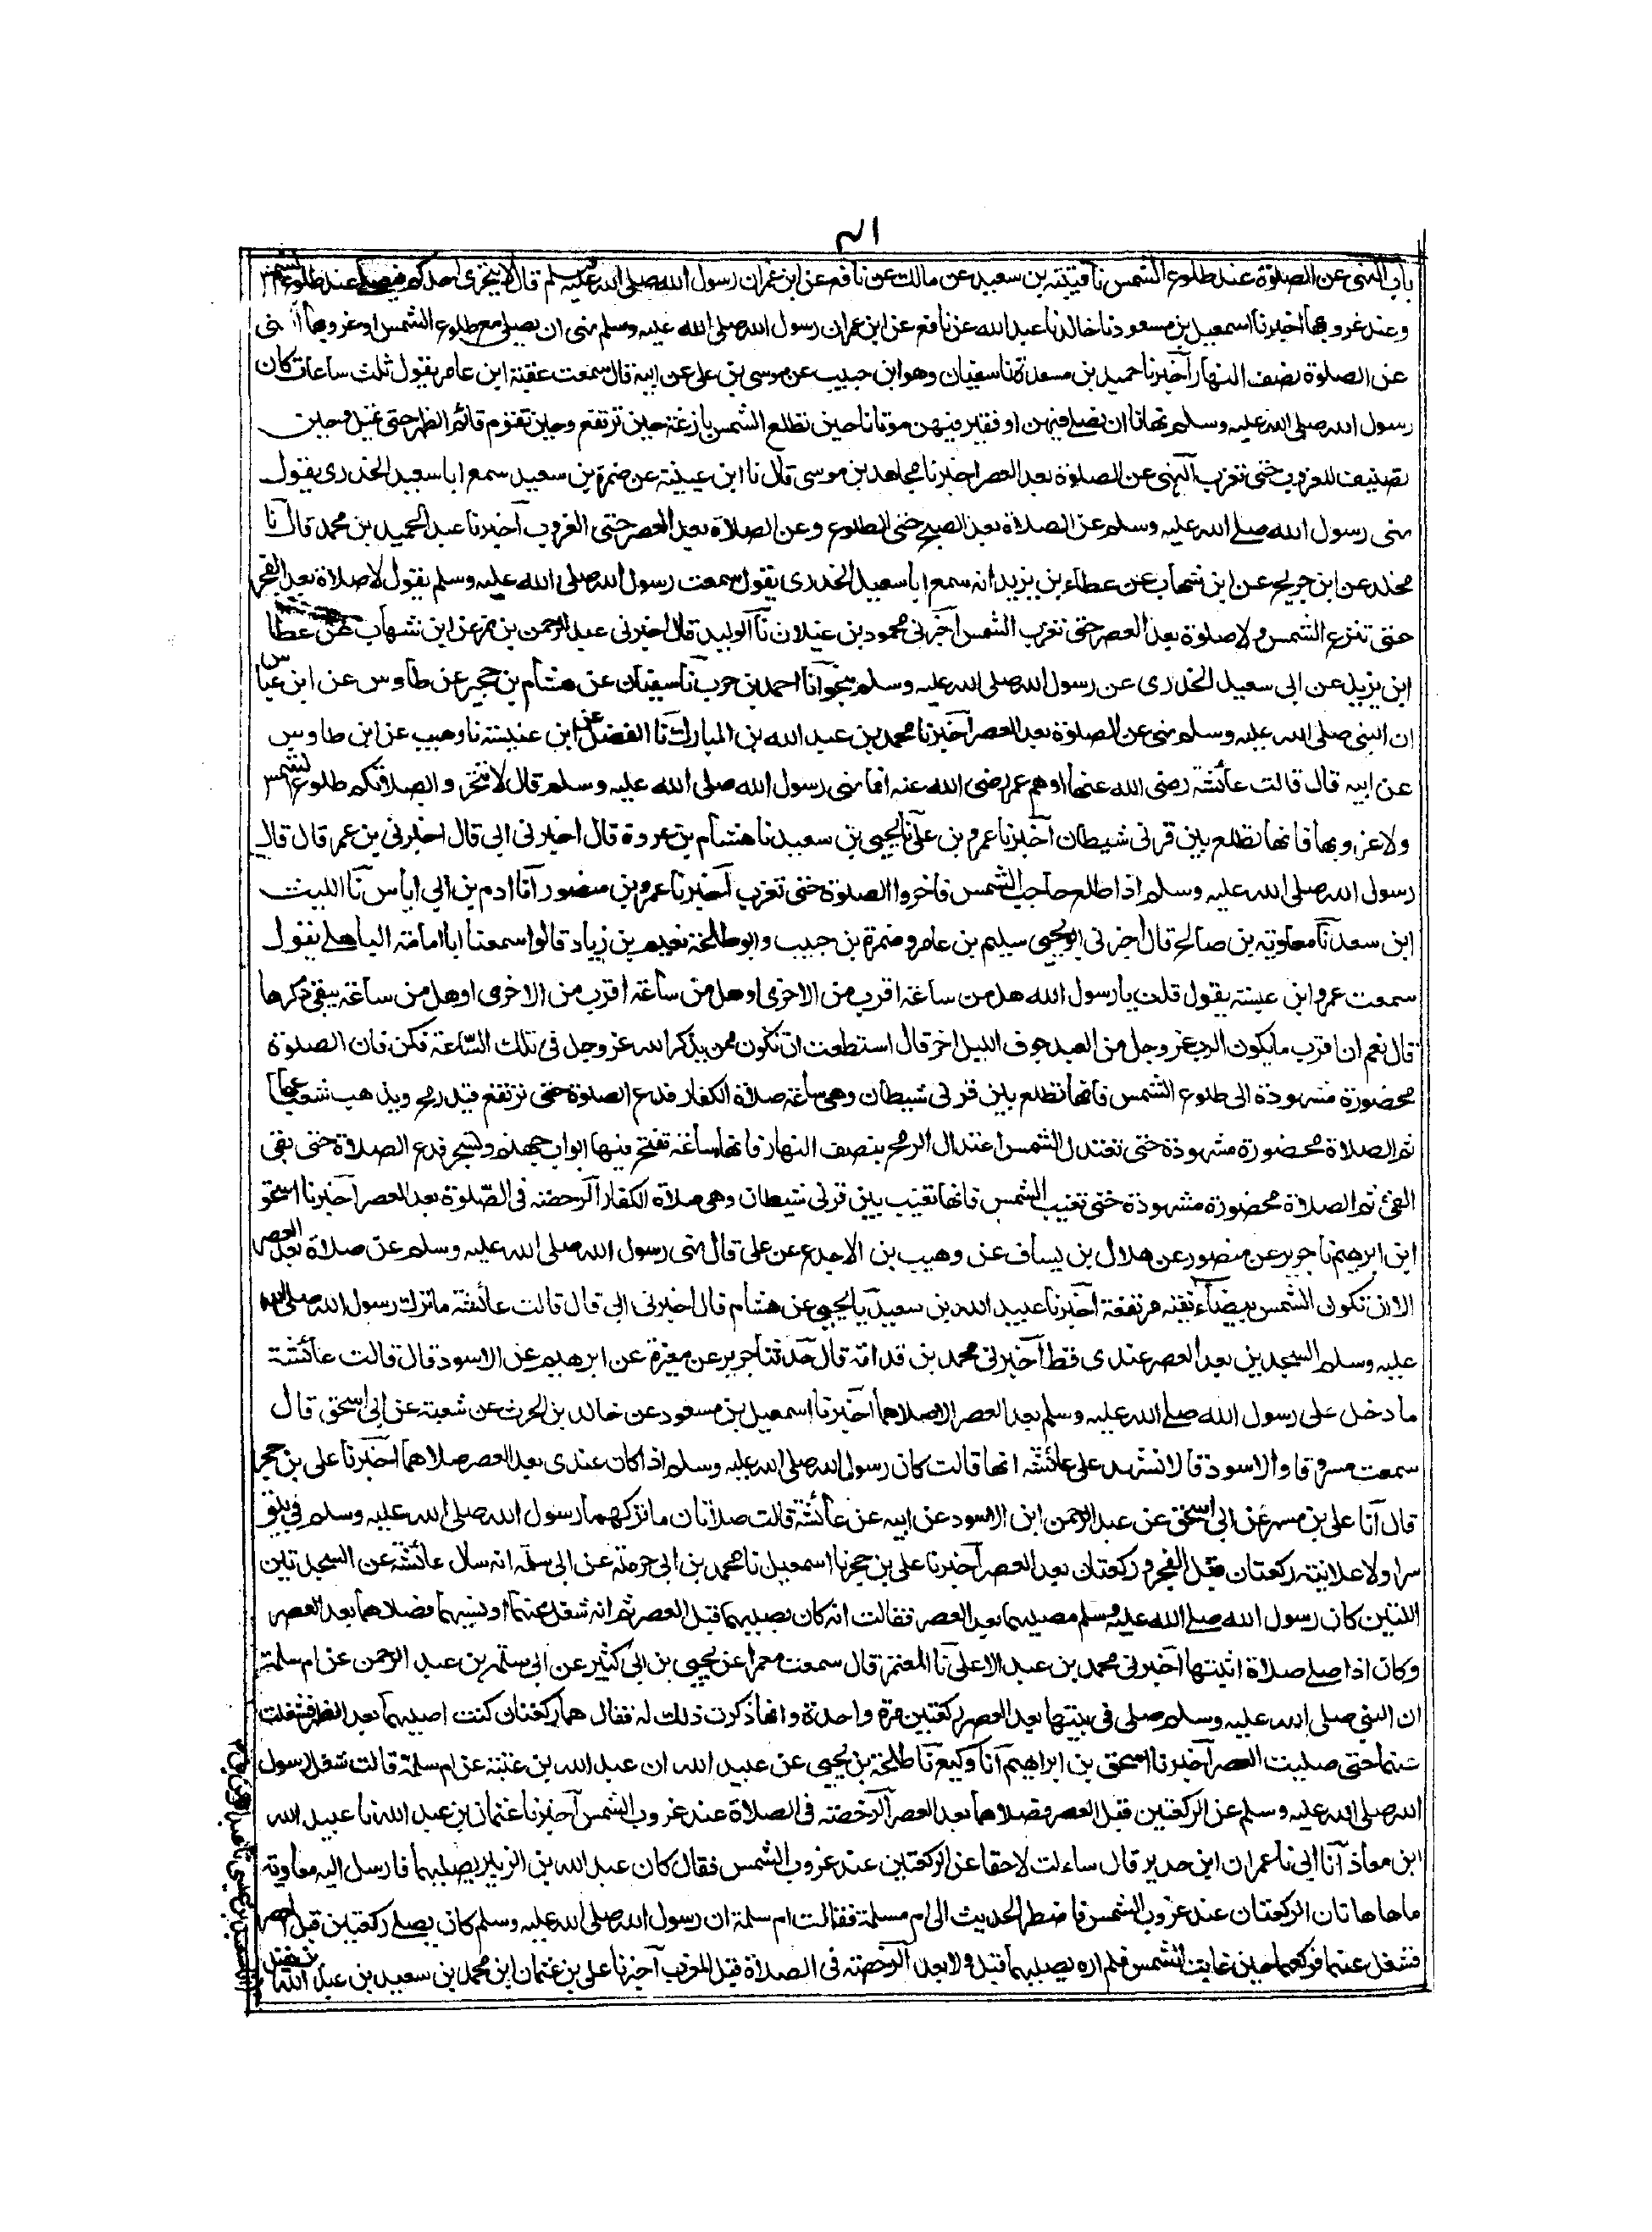 باب النهى عن الصلوة عند طلوع الشمس نا قتيبة بن سعيد عن مالك عن نافع عن ابن عمر ان رسول الله صلى الله عليه وسلم قال لا يتحرى احدكم فيصلى عند طلوع الشمس
وعند غروبها اخبرنا اسمعيل بن مسعود نا خالد نا عبيد الله عن نافع عن ابن عمر ان رسول الله صلى الله عليه وسلم نهى ان يصلى مع طلوع الشمس او غروبها النهى
عن الصلوة نصف النهار اخبرنا حميد بن مسعدة نا سفيان وهو ابن حبيب عن موسى بن على عن ابيه قال سمعت عقبة ابن عامر يقول ثلث ساعات كان
رسول الله صلى الله عليه وسلم نهانا ان نصلى فيهن او نقبر فيهن موتانا حين تطلع الشمس بازغة حين ترتفع وحين تقوم قائم الظهر حتى تميل وحين
تضيف للغروب حتى تغرب النهى عن الصلوة بعد العصر اخبرنا مجاهد بن موسى قال نا ابن عيينة عن ضمرة بن سعيد سمع ابا سعيد الخدرى يقول
نهى رسول الله صلى الله عليه وسلم عن الصلاة بعد الصبح حتى الطلوع وعن الصلاة بعد العصر حتى الغروب اخبرنا عبد الحميد بن محمد قال نا
مخلد عن ابن جريج عن ابن شهاب عن عطاء بن يزيد انه سمع ابا سعيد الخدرى يقول سمعت رسول الله صلى الله عليه وسلم يقول لا صلاة بعد الفجر
حتى تبزغ الشمس ولا صلوة بعد العصر حتى تغرب الشمس اخبرنى محمود بن غيلان نا الوليد قال اخبرنى عبد الرحمن بن نمر عن ابن شهاب عن عطا
ابن يزيد عن ابى سعيد الخدرى عن رسول الله صلى الله عليه وسلم بنحو انا احمد بن حرب نا سفيان عن هشام بن حجير عن طاوس عن ابن عباس
ان النبى صلى الله عليه وسلم نهى عن الصلوة بعد العصر اخبرنا محمد بن عبد الله بن المبارك نا الفضل عن ابن عنبسة نا وهيب عن ابن طاوس
عن ابيه قال قالت عائشة رضى الله عنها اوهم عمر رضى الله عنه انما نهى رسول الله صلى الله عليه وسلم قال لا تتحروا بصلاتكم طلوع الشمس
ولا غروبها فانها تطلع بين قرنى شيطان اخبرنا عمرو بن على نا يحيى بن سعيد نا هشام بن عروة قال اخبرنى ابى قال اخبرنى بن عمر قال قال
رسول الله صلى الله عليه وسلم اذا طلع حاجب الشمس فاخروا الصلوة حتى تغرب اخبرنا عمرو بن منصور انا ادم بن ابى اياس نا الليث
ابن سعد نا معاوية بن صالح قال اخبرنى ابو يحيى سليم بن عامر وضمرة بن حبيب وابو طلحة نعيم بن زياد قالوا سمعنا ابا امامة الباهلى يقول
سمعت عمرو ابن عبسة يقول قلت يا رسول الله هل من ساعة اقرب من الاخرى او هل من ساعة اقرب من الاخرى او هل من ساعة يبقى ذكرها
قال نعم ان اقرب ما يكون الرب عز وجل من العبد جوف الليل اخر قال استطعت ان تكون ممن يذكر الله عز وجل فى تلك الساعة فكن فان الصلوة
محضورة مشهودة الى طلوع الشمس فانها تطلع بين قرنى شيطان وهى ساعة صلاة الكفار فدع الصلوة حتى ترتفع قيد رمح ويذهب شعاعها
ثم الصلاة محضورة مشهودة حتى تعتدل الشمس اعتدال الرمح بنصف النهار فانها ساعة تفتح فيها ابواب جهنم وتسجر فدع الصلاة حتى يفى
الفئ ثم الصلاة محضورة مشهودة حتى تغيب الشمس فانها تغيب بين قرنى شيطان وهى صلاة الكفار الرخصة فى الصلوة بعد العصر اخبرنا اسحق
ابن ابرهيم نا جرير عن منصور عن هلال بن يساف عن وهيب بن الاجدع عن على قال نهى رسول الله صلى الله عليه وسلم عن صلاة بعد العصر
الا ان تكون الشمس بيضآء نقية مرتفعة اخبرنا عبيد الله بن سعيد نا يحيى عن هشام قال اخبرنى ابى قال قالت عائشة ما ترك رسول الله صلى الله
عليه وسلم السجدين بعد العصر عندى قط اخبرنى محمد بن قدامة قال حدثنا جرير عن مغيرة عن ابرهيم عن الاسود قال قالت عائشة
ما دخل على رسول الله صلى الله عليه وسلم بعد العصر الا صلاهما اخبرنا اسمعيل بن مسعود عن خالد بن الحرث عن شعبة عن ابى اسحق قال
سمعت مسروقا والاسود قالا نشهد على عائشة انها قالت كان رسول الله صلى الله عليه وسلم اذا كان عندى بعد العصر صلاهما اخبرنا على بن حجر
قال انا على بن مسهر عن ابى اسحق عن عبد الرحمن ابن الاسود عن ابيه عن عائشة قالت صلاتان ما تركهما رسول الله صلى الله عليه وسلم فى بيتى
سرا ولا علانية ركعتان قبل الفجر وركعتان بعد العصر اخبرنا على بن حجر نا اسمعيل نا محمد بن ابى حرملة عن ابى سلمة انه سال عائشة عن السجدتين
اللتين كان رسول الله صلى الله عليه وسلم يصليهما بعد العصر فقالت انه كان يصليهما قبل العصر ثم انه شغل عنهما او نسيهما فصلاهما بعد العصر
وكان اذا صلى صلاة اثبتها اخبرنى محمد بن عبد الاعلى نا المعتمر قال سمعت معمرا عن يحيى بن ابى كثير عن ابى سلمة بن عبد الرحمن عن ام سلمة
ان النبى صلى الله عليه وسلم صلى فى بيتها بعد العصر ركعتين مرة واحدة وانها ذكرت ذلك له فقال هما ركعتان كنت اصليهما بعد الظهر فشغلت
عنهما حتى صليت العصر اخبرنا اسحق بن ابراهيم انا وكيع نا طلحة بن يحيى عن عبيد الله ان عبد الله بن عتبة عن ام سلمة قالت شغل رسول
الله صلى الله عليه وسلم عن الركعتين قبل العصر فصلاهما بعد العصر الرخصة فى الصلاة عند غروب الشمس اخبرنا عثمان بن عبد الله نا عبيد الله
ابن معاذ انا ابى نا عمران ابن حدير قال ساءلت لاحقا عن الركعتين عند غروب الشمس فقال كان عبد الله بن الزبير يصليهما فارسل اليه معاوية
ما هاهاتان الركعتان عند غروب الشمس فاضطر الحديث الى ام مسلمة فقالت ام سلمة ان رسول الله صلى الله عليه وسلم كان يصلى ركعتين قبل العصر
فشغل عنهما فركعهما حين غابت الشمس فلم اره يصليهما قبل ولا بعد الرخصة فى الصلاة قبل المغرب اخبرنا على بن عثمان ابن محمد بن سعيد بن عبد الله بن نفيل